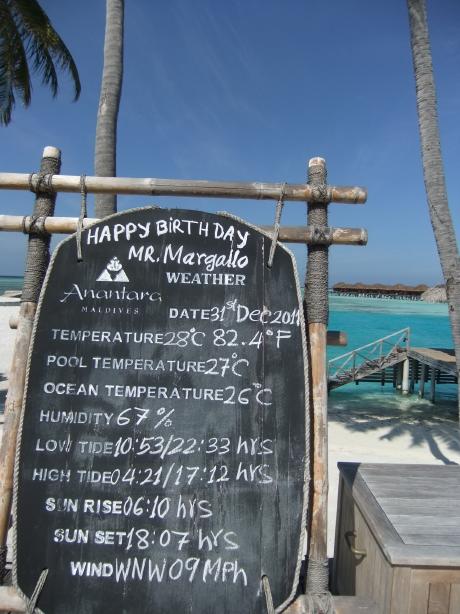 HAPPY BIRTHDAY
MR. Margallo
WEATHER
Anantara
MALDIVES
DATE 31st Dec 2011
TEMPERATURE 28°C 82.4°F
POOL TEMPERATURE 27°C
OCEAN TEMPERATURE 26°C
HUMIDITY 67%
LOW TIDE 10:53/22:33 hrs
HIGH TIDE 04:21/17:12 hrs
SUN RISE 06:10 hrs
SUN SET 18:07 hrs
WIND WNW09Mph